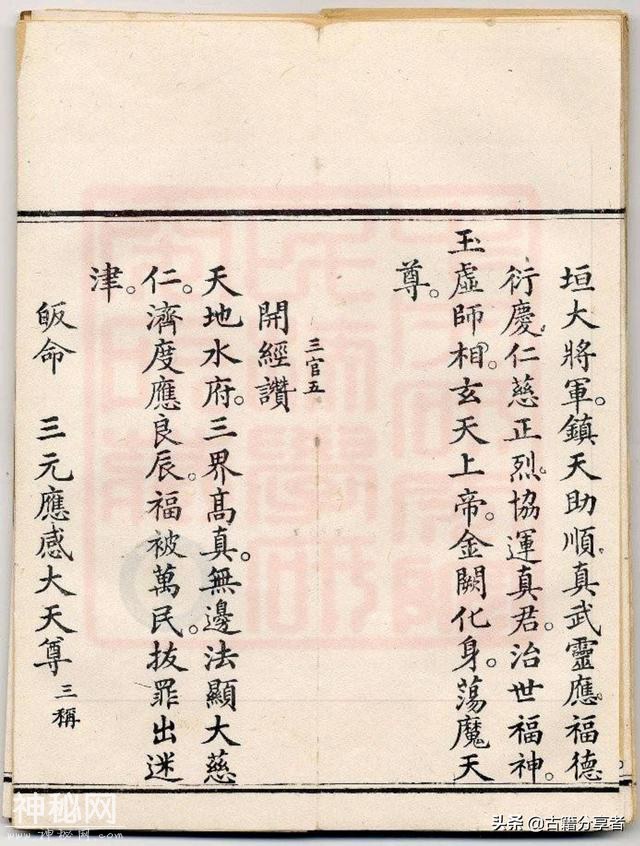 垣大將軍。鎮天助順。真武靈應。福德
衍慶。仁慈正烈。協運真君。治世福神。
玉虛師相。玄天上帝。金闕化身。蕩魔天
尊。
三官五
開經讚
天地水府。三界高真。無邊法顯大慈
仁。濟度應良辰。福被萬民。拔罪出迷
津。
皈命　三元應感大天尊 三稱
神秘网
www.神秘网.com
头条 @古籍分享者